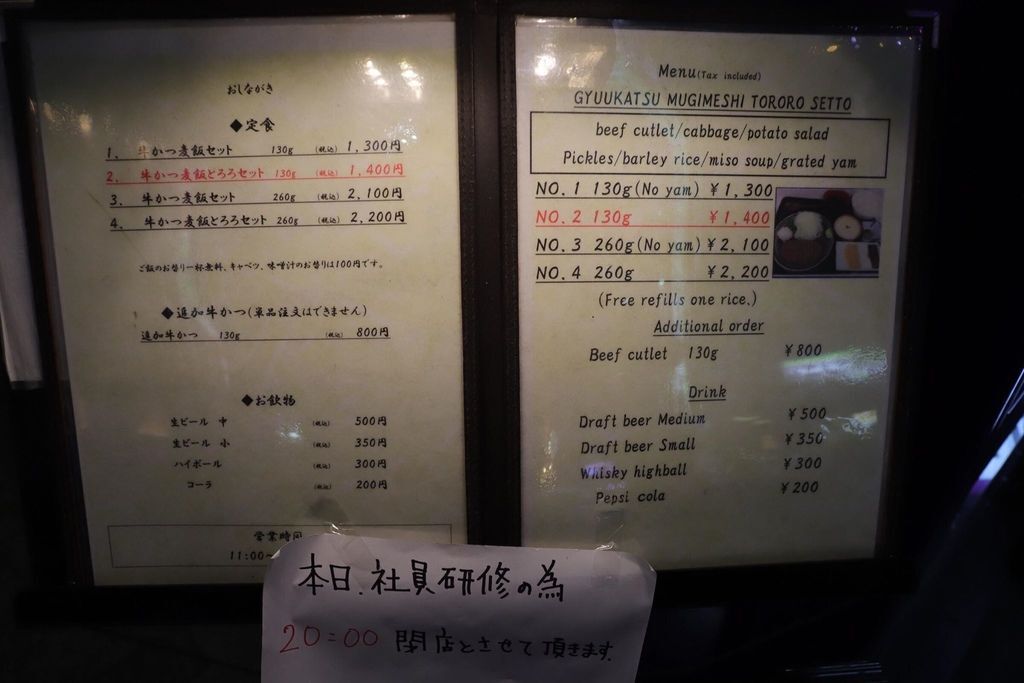 おしながき
◆定食
1. 牛かつ麦飯セット 130g (税込) 1,300円
2. 牛かつ麦飯とろろセット 130g (税込) 1,400円
3. 牛かつ麦飯セット 260g (税込) 2,100円
4. 牛かつ麦飯とろろセット 260g (税込) 2,200円
ご飯のお替り一杯無料、キャベツ、味噌汁のお替りは100円です。
◆追加牛かつ(単品注文はできません)
追加牛かつ 130g (税込) 800円
◆お飲物
生ビール 中 (税込) 500円
生ビール 小 (税込) 350円
ハイボール (税込) 300円
コーラ (税込) 200円
営業時間
11:00~
Menu(Tax included)
GYUUKATSU MUGIMESHI TORORO SETTO
beef cutlet/cabbage/potato salad
Pickles/barley rice/miso soup/grated yam
NO. 1 130g(No yam) ¥1,300
NO. 2 130g ¥1,400
NO. 3 260g(No yam) ¥2,100
NO. 4 260g ¥2,200
(Free refills one rice.)
Additional order
Beef cutlet 130g ¥800
Drink
Draft beer Medium ¥500
Draft beer Small ¥350
Whisky highball ¥300
Pepsi cola ¥200
本日、社員研修の為
20:00 閉店とさせて頂きます。